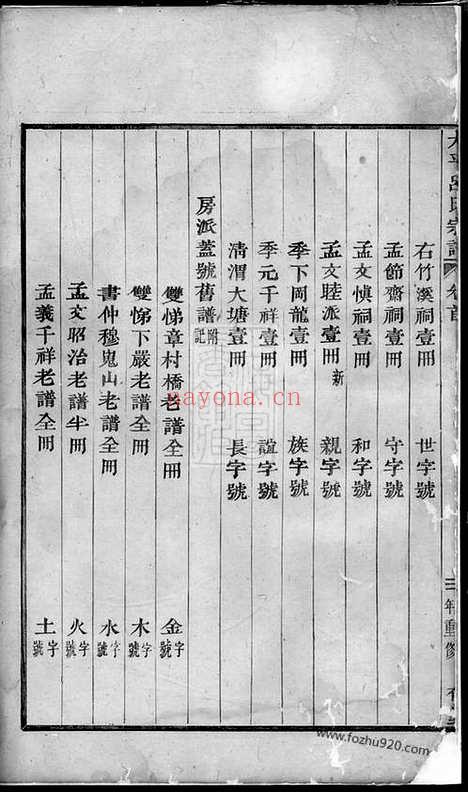 呂氏宗譜 卷首
右竹溪祠壹冊 世字號
孟節齋祠壹冊 守字號
孟文慎祠壹冊 和字號
孟文睦派壹冊新 親字號
季下岡龍壹冊 族字號
季元千祥壹冊 誼字號
淸渭大塘壹冊 長字號
房派蓋號舊譜附記
雙悌章村橋老譜全冊 金字號
雙悌下嚴老譜全冊 木字號
書仲穆嵬山老譜全冊 水字號
孟文昭治老譜半冊 火字號
孟義千祥老譜全冊 土字號
nayona.cn
www.fozhu920.com